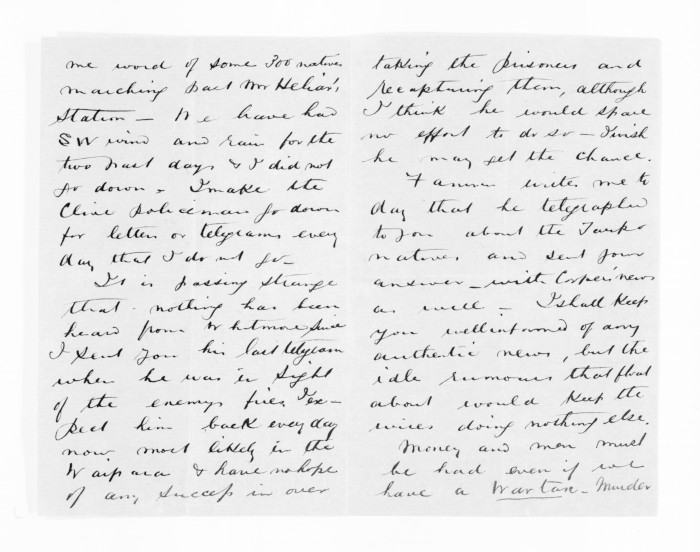 me word of some 300 natives
marching past Mr Helias's
Station — We have had
SW wind and rain for the
two past days & I did not
go down — I make the
Clive policeman go down
for letters or telegrams every
day that I do not go —
It is passing strange
that nothing has been
heard from Whitmore since
I sent you his last telegram
when he was in sight
of the enemys fires, I ex-
pect him back every day
now most likely in the
Waipaoa & have no hope
of any success in over
taking the prisoners and
recapturing them, although
I think he would spare
no effort to do so — I wish
he may get the chance.
Fannin writes me to
day that he telegraphed
to you about the Taupo
natives and sent your
answer — with Corper's news
as well — I shall keep
you well informed of any
authentic news, but the
idle rumours that float
about would keep the
wires doing nothing else.
Money and men must
be had even if we
have a War tax — Murder